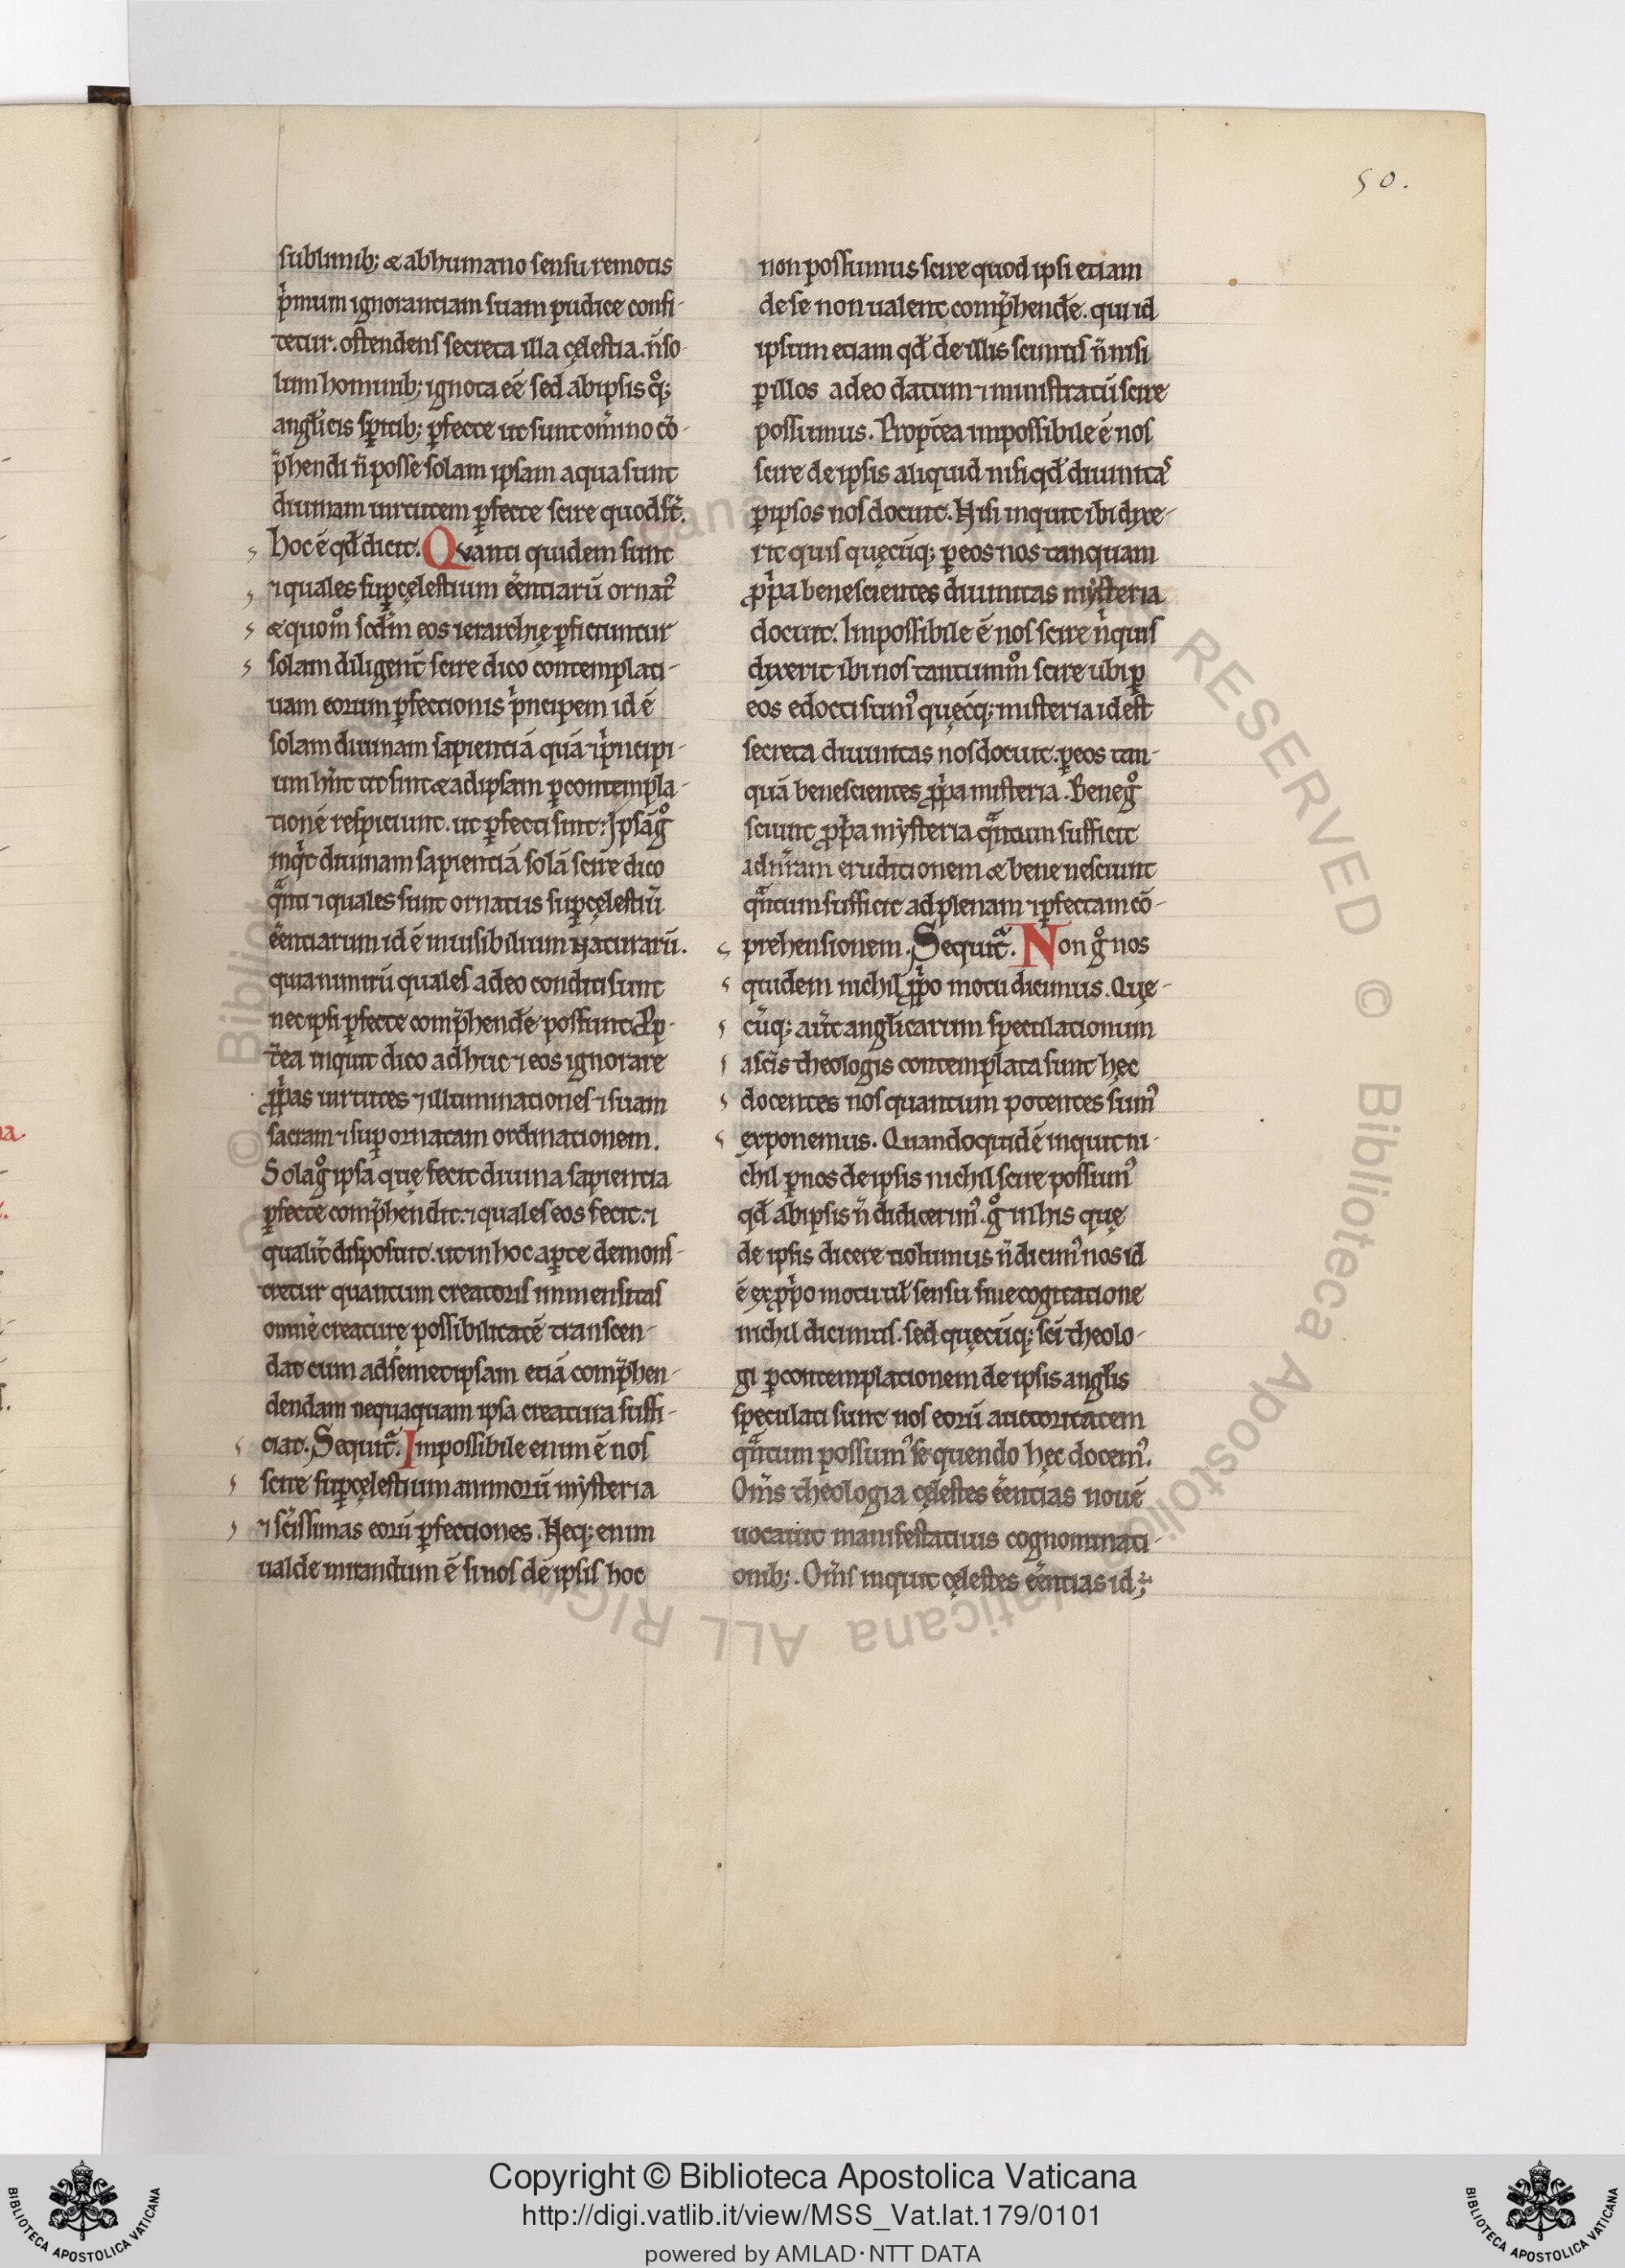 50.
sublimib; & ab humano sensu remotis
p̍mum ignorantiam suam pudice confi-
tetur. ostendens secreta illa cęlestia. n̄ so-
lum hominib; ignota eē sed ab ipsis q̊;
angl̄icis sp̄itib; ꝑfecte ut sunt om̄ino cō-
p̄hendi n̄ posse solam ipsam a qua sunt
diuinam uirtutem ꝑfecte scire quod sc̄.
hoc ē qd̄ dicit. Quanti quidem sunt
⁊ quales suꝑcęlestium ēentiarū ornat᾽
& quom̊ scd̄m eos ierarchię ꝑficiuntur
solam diligent̄ scire dico contemplati-
uam eorum ꝑfectionis p̍ncipem id ē
solam diuinam sapientiā quā ⁊ p̍ncipi-
um hn̄t ut sint & ad ipsam ꝑ contempla-
tionē respiciunt. ut ꝑfecti sint; Ipsā g̊
inq̍t diuinam sapientiā solā scire dico
qᵃnti ⁊ quales sunt ornatus suꝑcęlestiū
ēentiarum id ē inuisibilium naturarū.
quia nimirū quales a deo conditi sunt
nec ipsi ꝑfecte comp̄hende᷒ possunt. Prop-
t̄ea inquit dico adhuc ⁊ eos ignorare
ꝓp̍as uirtutes ⁊ illuminationes ⁊ suam
sacram ⁊ suꝑornatam ordinationem.
Sola g̊ ipsa quę fecit diuina sapientia
ꝑfecte comp̄hendit. ⁊ quales eos fecit. ⁊
qualit̄ disposuit. ut in hoc aꝑte demons-
tretur quantum creatoris immensitas
omnē creaturę possibilitatē transcen-
dat cum ad semetipsam etiā comp̄hen-
dendam nequaquam ipsa creatura suffi-
ciat. Sequit᷒. Impossibile enim ē nos
scire suꝑcęlestium animorū mẏsteria
⁊ sc̄issimas eorū ꝑfectiones. Neq; enim
ualde mirandum ē si nos de ipsis hoc
non possumus scire quod ipsi etiam
de se non ualent comp̄hende᷒. qui id
ipsum etiam qd̄ de illis scimus n̄ nisi
ꝑ illos a deo datum ⁊ ministratū scire
possumus. Propt̄ea impossibile ē nos
scire de ipsis aliquid nisi qd̄ diuinitas
ꝑ ipsos nos docuit. Nisi inquit ibi dixe-
rit quis quęcūq; ꝑ eos nos tanquam
ꝓp̍a bene scientes diuinitas mẏsteria
docuit. Impossibile ē nos scire n̍ quis
dixerit ibi nos tantumm̊ scire ubi ꝑ
eos edocti sum᾽ quęcq; misteria id est
secreta diuinitas nos docuit. ꝑ eos tan-
quā bene scientes ꝓp̍a misteria. Bene g̊
sciunt ꝓp̍a mẏsteria qᵃntum sufficit
ad nr̄am eruditionem & bene nesciunt
qᵃntum sufficit ad plenam ⁊ ꝑfectam cō-
prehensionem. Sequit᷒. Non g̊ nos
quidem nichil ꝓp̍o motu dicimus. Quę-
cūq; aūt angl̄icarum speculationum
a sc̄is theologis contemplata sunt hęc
docentes nos quantum potentes sum᾽
exponemus. Quandoquidē inquit ni-
chil ꝑ nos de ipsis nichil scire possum᾽
qd̄ ab ipsis n̄ didicerim᾽. g̊ in his quę
de ipsis dicere uolumus n̄ dicim᾽ nos id
ē ex ꝓp̍o motu ul̄ sensu siue cogitatione
nichil dicimus. sed quęcūq; sc̄i theolo-
gi ꝑ contemplationem de ipsis angl̄is
speculati sunt nos eorū auctoritatem
qᵃntum possum᾽ sequendo hęc docem᾽.
Om̄s theologia cęlestes ēentias nouē
uocauit manifestatiuis cognominati-
onib;. Om̄s inquit cęlestes ēentias id;
Copyright © Biblioteca Apostolica Vaticana
http://digi.vatlib.it/view/MSS_Vat.lat.179/0101
powered by AMLAD·NTT DATA
BIBLIOTECA APOSTOLICA VATICANA
BIBLIOTECA APOSTOLICA VATICANA